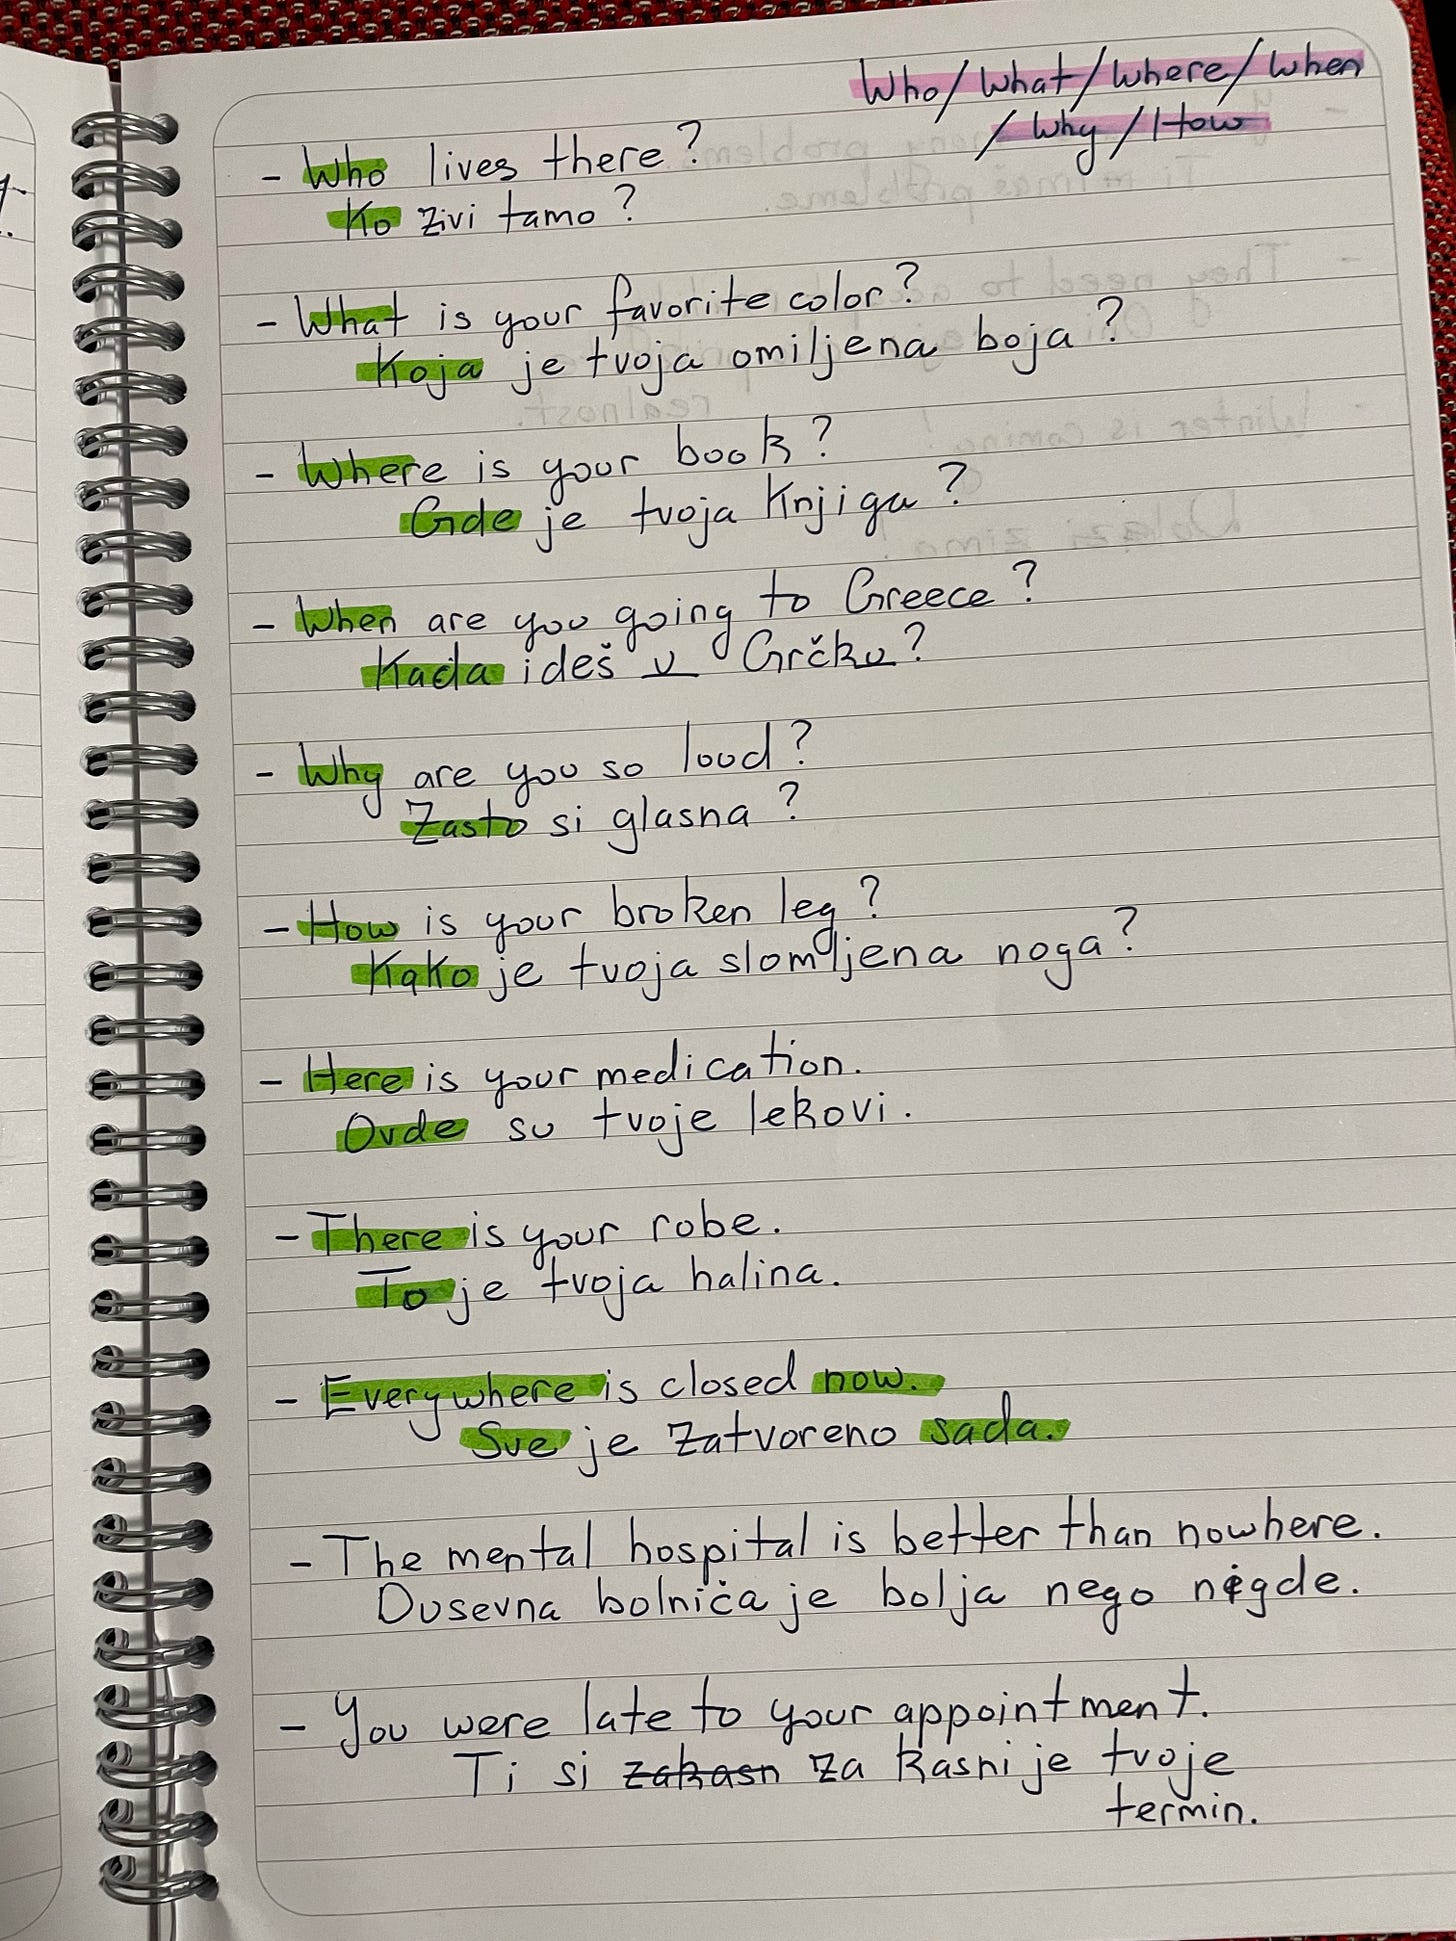 Who/What/Where/When
/Why/How
- Who lives there?
Ko zivi tamo?
- What is your favorite color?
Koja je tvoja omiljena boja?
- Where is your book?
Gde je tvoja Knjiga?
- When are you going to Greece?
Kada ideš u Grčku?
- Why are you so loud?
Zasto si glasna?
- How is your broken leg?
Kako je tvoja slomljena noga?
- Here is your medication.
Ovde su tvoje lekovi.
- There is your robe.
To je tvoja halina.
- Everywhere is closed now.
Sve je zatvoreno sada.
- The mental hospital is better than nowhere.
Dusevna bolnica je bolja nego nigde.
- You were late to your appointment.
Ti si zakasn za kasni je tvoje
termin.